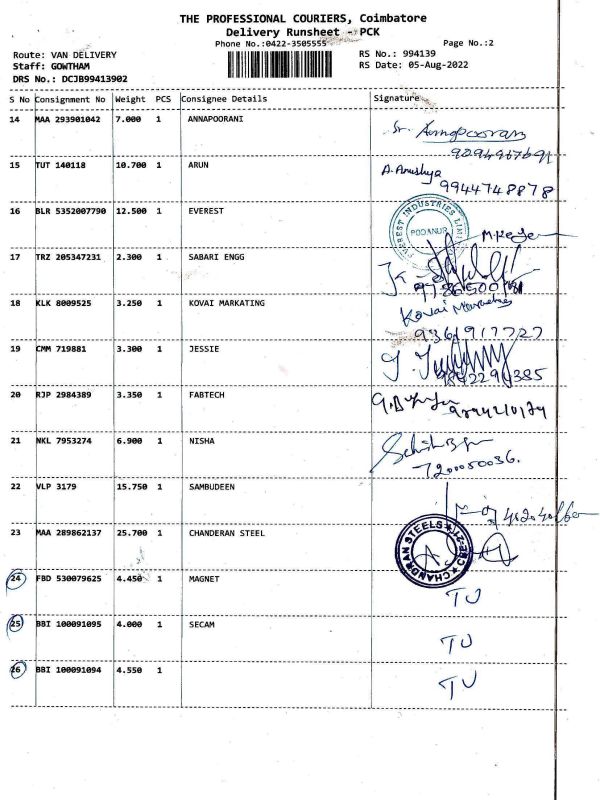 THE PROFESSIONAL COURIERS, Coimbatore
Delivery Runsheet - PCK
Phone No.:0422-3505555 Page No.:2
Route: VAN DELIVERY RS No.: 994139
Staff: GOWTHAM RS Date: 05-Aug-2022
DRS No.: DCJB99413902
S No Consignment No Weight PCS Consignee Details Signature
14 MAA 293901042 7.000 1 ANNAPOORANI
15 TUT 140118 10.700 1 ARUN A. Anushya
9944748878
16 BLR 5352007790 12.500 1 EVEREST EVEREST INDUSTRIES PODANUR
17 TRZ 205347231 2.300 1 SABARI ENGG
18 KLK 8009525 3.250 1 KOVAI MARKATING Kovai
9361917727
19 CMM 719881 3.300 1 JESSIE
20 RJP 2984389 3.350 1 FABTECH
21 NKL 7953274 6.900 1 NISHA
7200050036.
22 VLP 3179 15.750 1 SAMBUDEEN
23 MAA 289862137 25.700 1 CHANDERAN STEEL CHANDRAN STEELS CBE-21
24 FBD 530079625 4.450 1 MAGNET TU
25 BBI 100091095 4.000 1 SECAM TU
26 BBI 100091094 4.550 1 TU